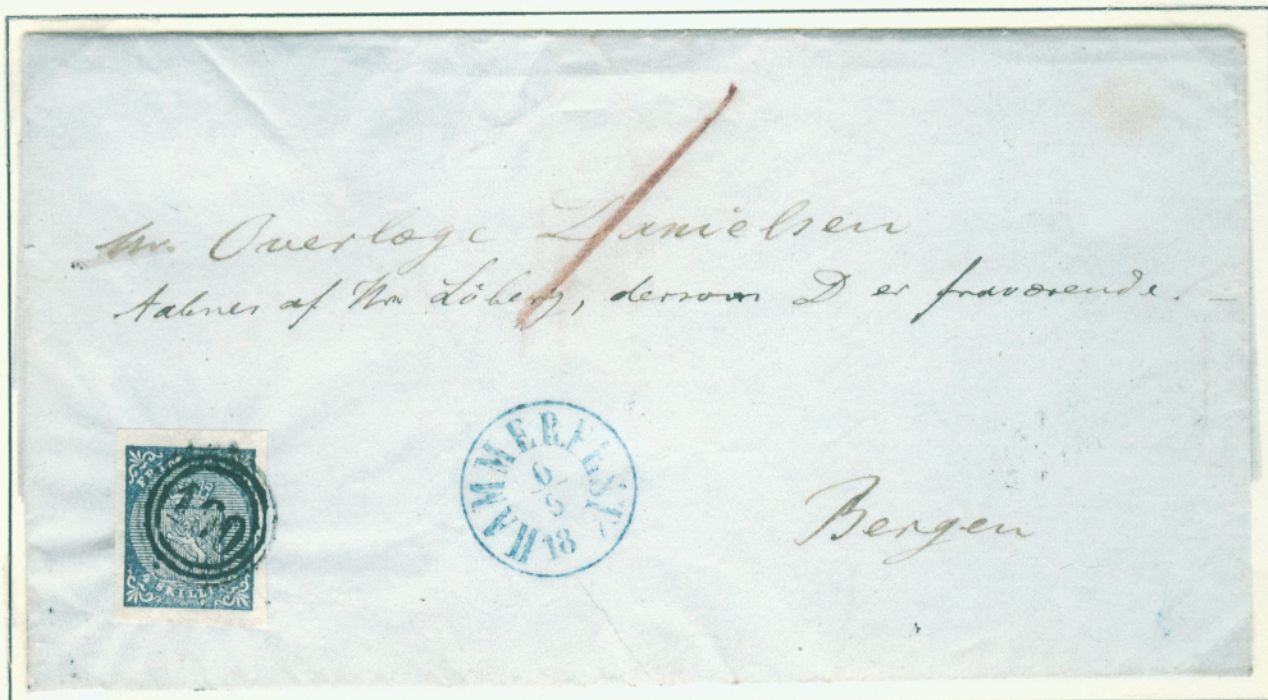 Hr. Overlæge Danielsen
Aabnes af Hr Löberg, dersom D er fraværende.
HAMMERFEST
6/5
18
Bergen
SKILLING